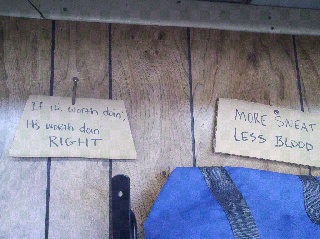 If its worth doin',
Its worth doin'
RIGHT
MORE SWEAT
LESS BLOOD